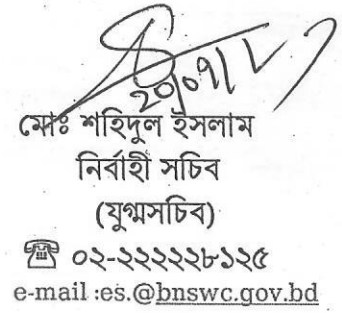 মোঃ শহিদুল ইসলাম
নির্বাহী সচিব
(যুগ্মসচিব)
☎ ০২-২২২২২৮১২৫
e-mail :es.@bnswc.gov.bd